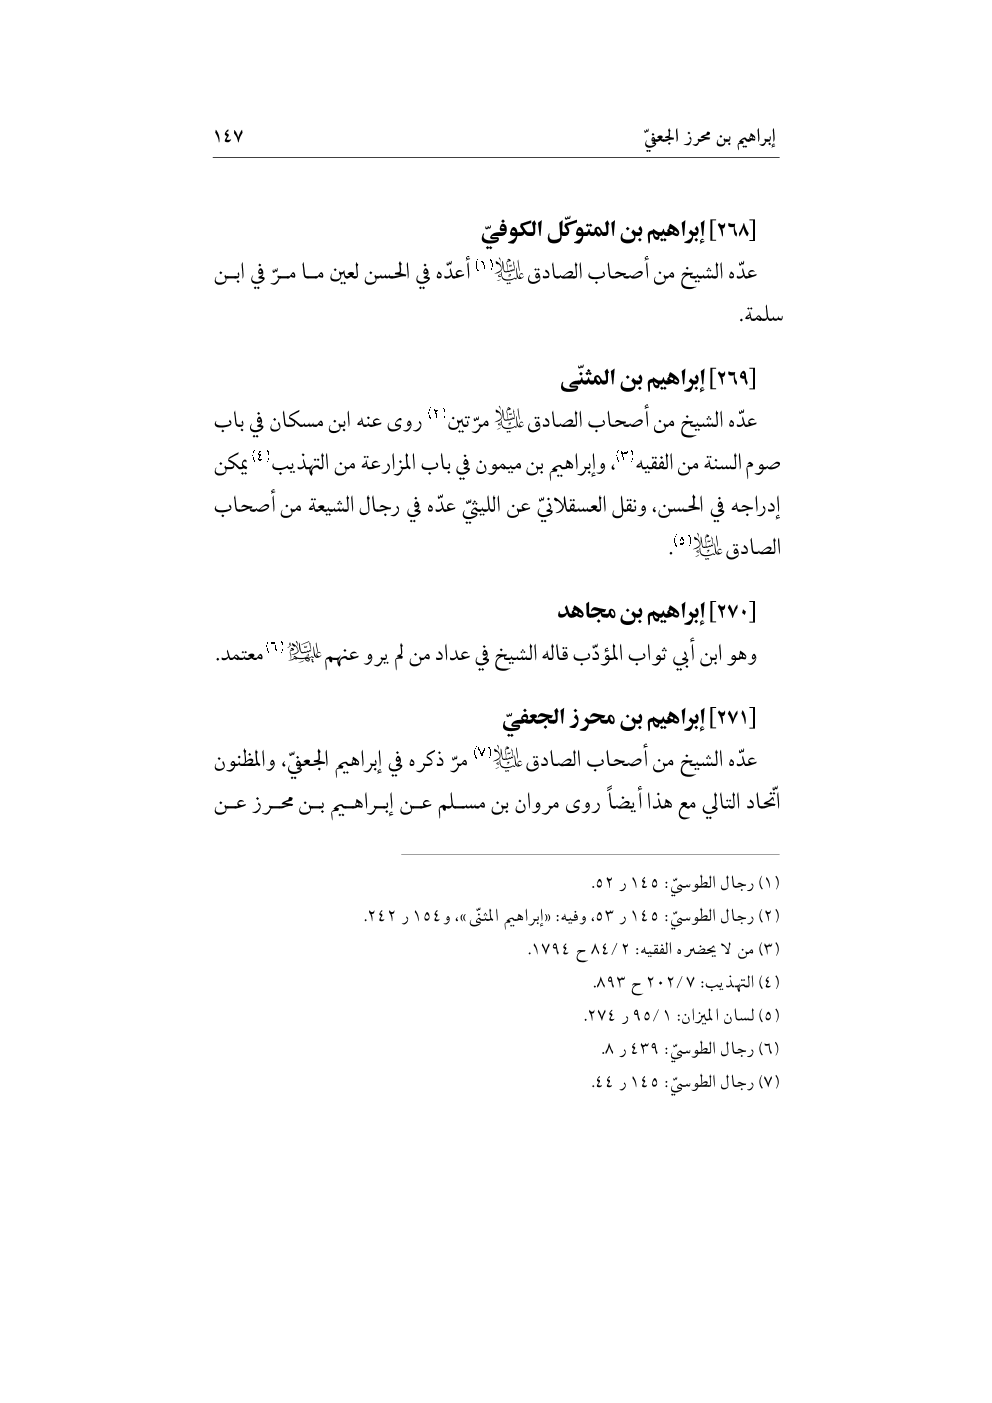 إبراهيم بن محرز الجعفيّ ١٤٧
[٢٦٨] إبراهيم بن المتوكّل الكوفيّ
عدّه الشيخ من أصحاب الصادق عليه السلام(١) أعدّه في الحسن لعين مـا مـرّ في ابـن
سلمة.
[٢٦٩] إبراهيم بن المثنّى
عدّه الشيخ من أصحاب الصادق عليه السلام مرّتين(٢) روى عنه ابن مسكان في باب
صوم السنة من الفقيه(٣)، وإبراهيم بن ميمون في باب المزارعة من التهذيب(٤) يمكن
إدراجه في الحسن، ونقل العسقلانيّ عن الليثيّ عدّه في رجال الشيعة من أصحاب
الصادق عليه السلام(٥).
[٢٧٠] إبراهيم بن مجاهد
وهو ابن أبي ثواب المؤدّب قاله الشيخ في عداد من لم يرو عنهم عليهم السلام(٦) معتمد.
[٢٧١] إبراهيم بن محرز الجعفيّ
عدّه الشيخ من أصحاب الصادق عليه السلام(٧) مرّ ذكره في إبراهيم الجعفيّ، والمظنون
اتّحاد التالي مع هذا أيضاً روى مروان بن مسـلم عـن إبـراهـيم بـن محـرز عـن
(١) رجال الطوسيّ: ١٤٥ ر ٥٢.
(٢) رجال الطوسيّ: ١٤٥ ر ٥٣، وفيه: «إبراهيم المثنّى»، و ١٥٤ ر ٢٤٢.
(٣) من لا يحضره الفقيه: ٢/ ٨٤ ح ١٧٩٤.
(٤) التهذيب: ٧/ ٢٠٢ ح ٨٩٣.
(٥) لسان الميزان: ١/ ٩٥ ر ٢٧٤.
(٦) رجال الطوسيّ: ٤٣٩ ر ٨.
(٧) رجال الطوسيّ: ١٤٥ ر ٤٤.